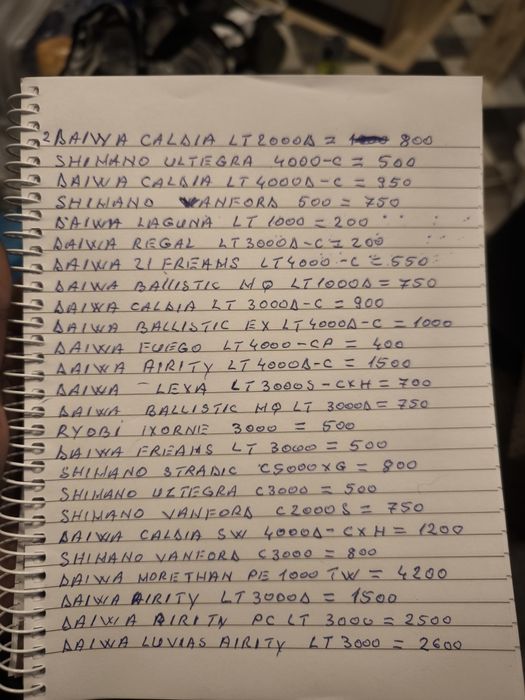 2 DAIWA CALDIA LT2000D = 800
SHIMANO ULTEGRA 4000-C = 500
DAIWA CALDIA LT4000D-C = 950
SHIMANO VANFORD 500 = 750
DAIWA LAGUNA LT 1000 = 200
DAIWA REGAL LT3000D-C = 200
DAIWA 21 FREAMS LT4000-C = 550
DAIWA BALLISTIC MQ LT1000D = 750
DAIWA CALDIA LT 3000D-C = 900
DAIWA BALLISTIC EX LT4000D-C = 1000
DAIWA FUEGO LT4000-CP = 400
DAIWA AIRITY LT4000D-C = 1500
DAIWA LEXA LT3000S-CXH = 700
DAIWA BALLISTIC MQ LT 3000D = 750
RYOBI IXORNE 3000 = 500
DAIWA FREAMS LT 3000 = 500
SHIMANO STRADIC C5000XG = 800
SHIMANO ULTEGRA C3000 = 500
SHIMANO VANFORD C2000S = 750
DAIWA CALDIA SW 4000D-CXH = 1200
SHIMANO VANFORD C3000 = 800
DAIWA MORETHAN PE 1000 TW = 4200
DAIWA AIRITY LT3000D = 1500
DAIWA AIRITY PC LT 3000 = 2500
DAIWA LUVIAS AIRITY LT 3000 = 2600